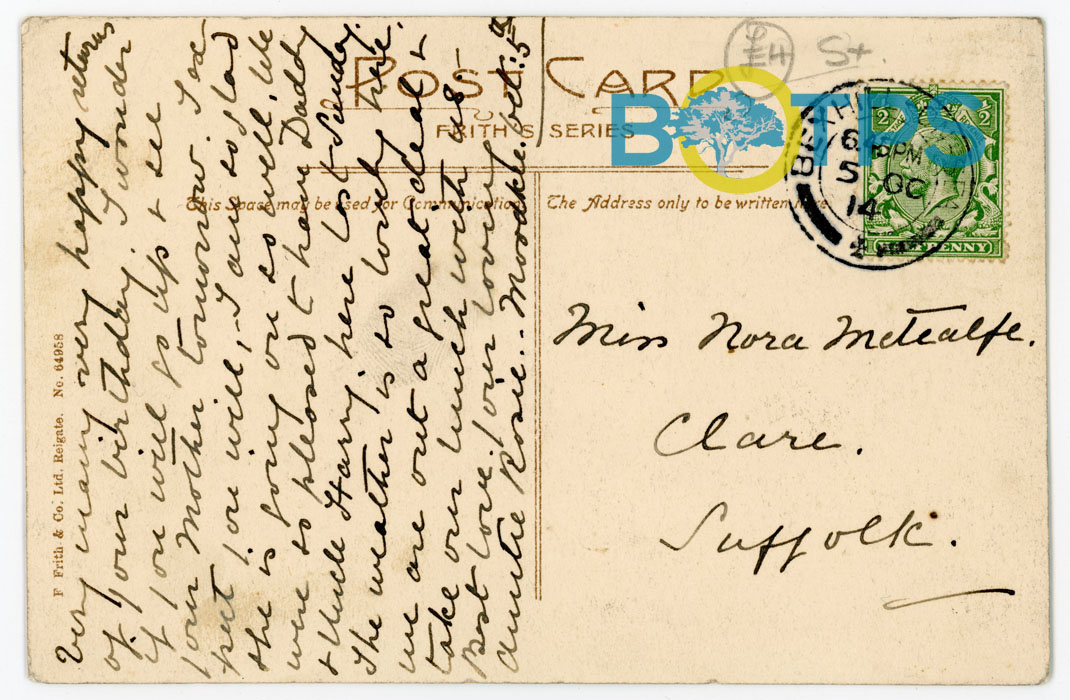 POST CARD
FRITH'S SERIES
This Space may be used for Communication.
The Address only to be written here.
£4 St.
BOTPS
645PM
5 OC
14
HALFPENNY
Miss Nora Metcalfe.
Clare.
Suffolk.
Very many very happy returns
of your birthday. I wonder
if you will go up & see
your Mother tomorrow. I ex-
pect you will, I am so glad
she is going on so well. We
were so pleased to have Daddy
& Uncle Harry here last Sunday.
The weather is so lovely here.
we are out a great deal &
take our lunch with us.
Best love, your loving
Auntie Rosie. Oct: 5th
F Frith & Co. Ltd. Reigate. No. 64958